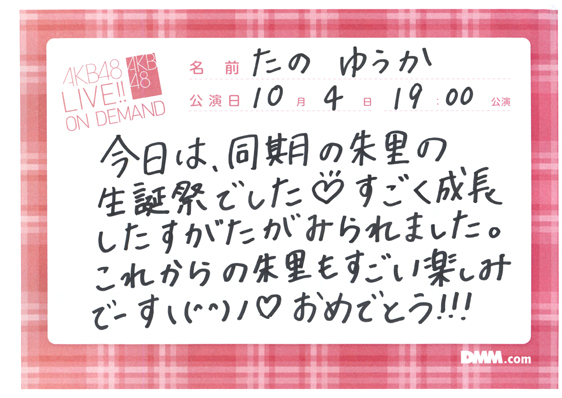 AKB48
LIVE!!
ON DEMAND
AKB
48
名前 たの ゆうか
公演日 10月 4日 19:00 公演
今日は、同期の朱里の
生誕祭でした♡すごく成長
したすがたがみられました。
これからの朱里もすごい楽しみ
でーす\(^^)/♡おめでとう!!!
DMM.com